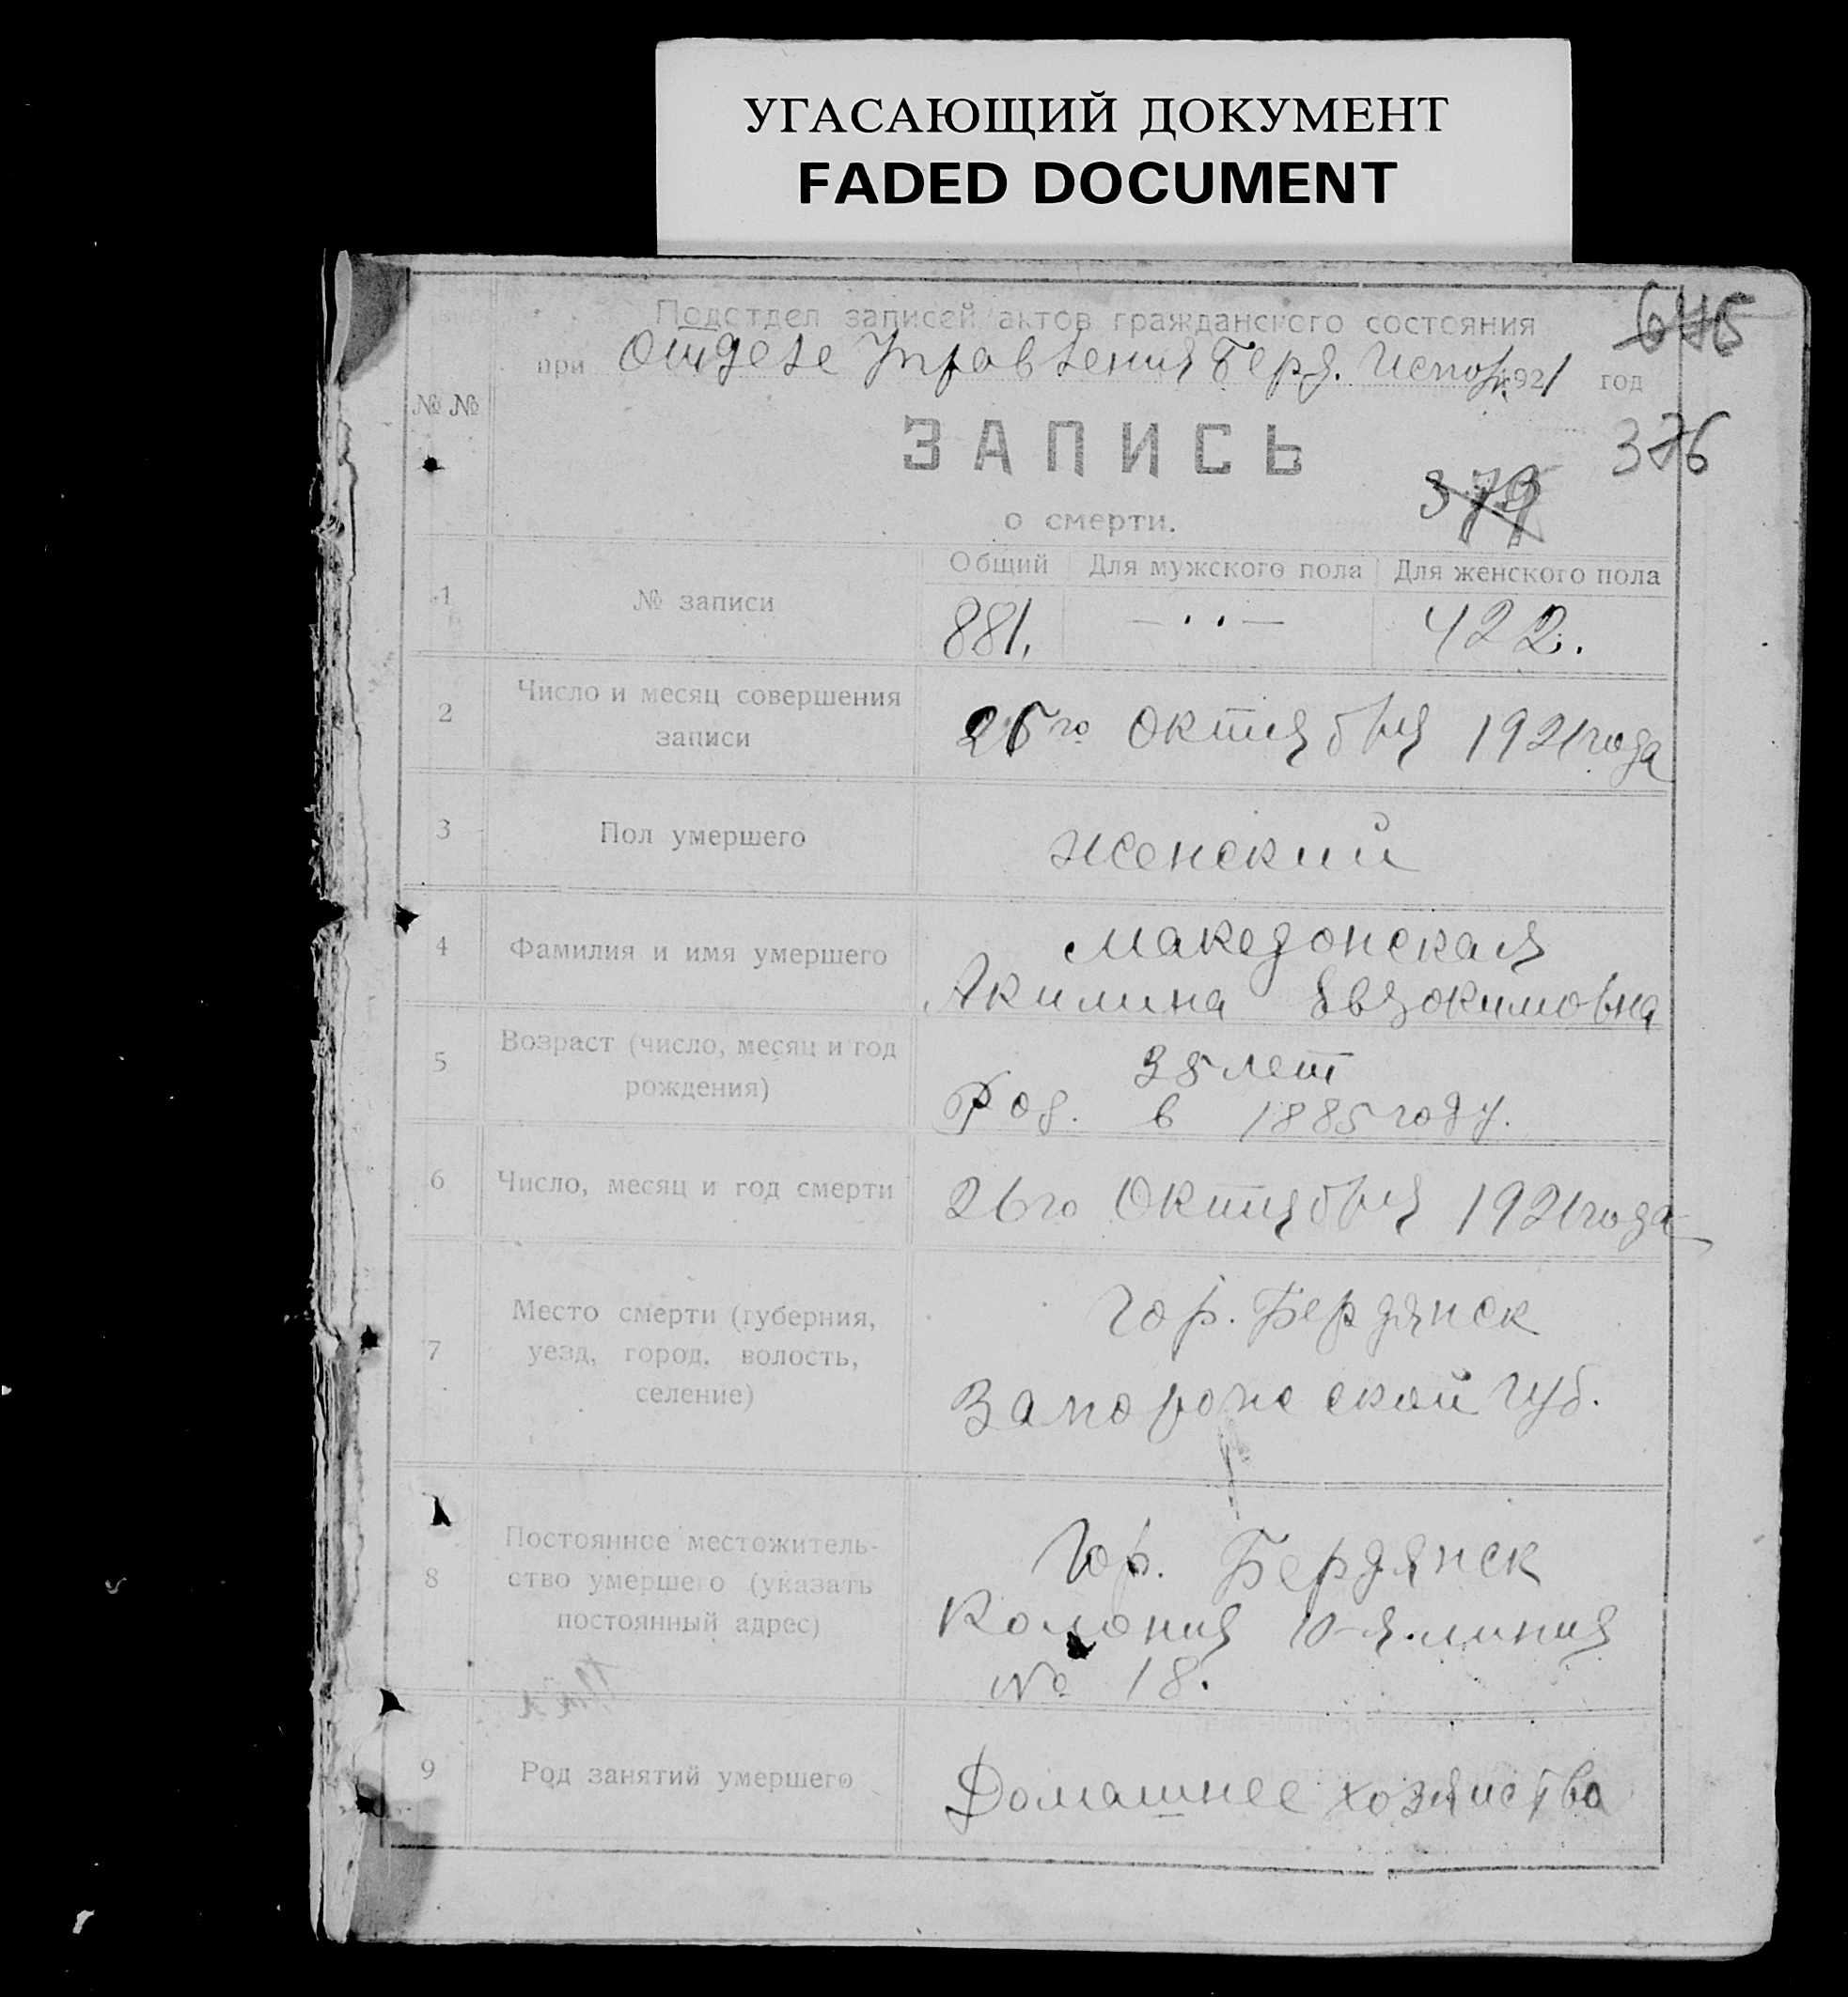 УГАСАЮЩИЙ ДОКУМЕНТ
FADED DOCUMENT
Подотдел записей актов гражданского состояния
645
при Отделе Управления Берд. Исполк. 1921 год
№ №
ЗАПИСЬ
376
379
о смерти.
Общий Для мужского пола Для женского пола
1 № записи 881. — · · — 422.
2 Число и месяц совершения
записи
26го Октября 1921 года
3 Пол умершего Женский
4 Фамилия и имя умершего
Македонская
Акилина Евдокимовна
5 Возраст (число, месяц и год
рождения)
35 лет
Род. в 1885 году.
6 Число, месяц и год смерти 26го Октября 1921 года
7 Место смерти (губерния,
уезд, город, волость,
селение)
Гор. Бердянск
Запорожской губ.
8 Постоянное местожитель-
ство умершего (указать
постоянный адрес)
Гор. Бердянск
Колония 10-я линия
№ 18.
9 Род занятий умершего Домашнее хозяиство